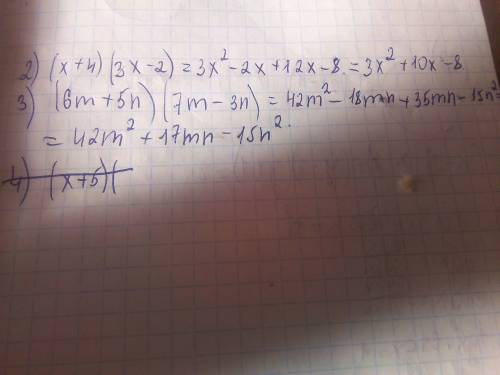 2) (x+4)(3x-2) = 3x²-2x+12x-8 = 3x²+10x-8
3) (6m+5n)(7m-3n) = 42m²-18mn+35mn-15n²=
= 42m²+17mn-15n².
4) (x+5)(